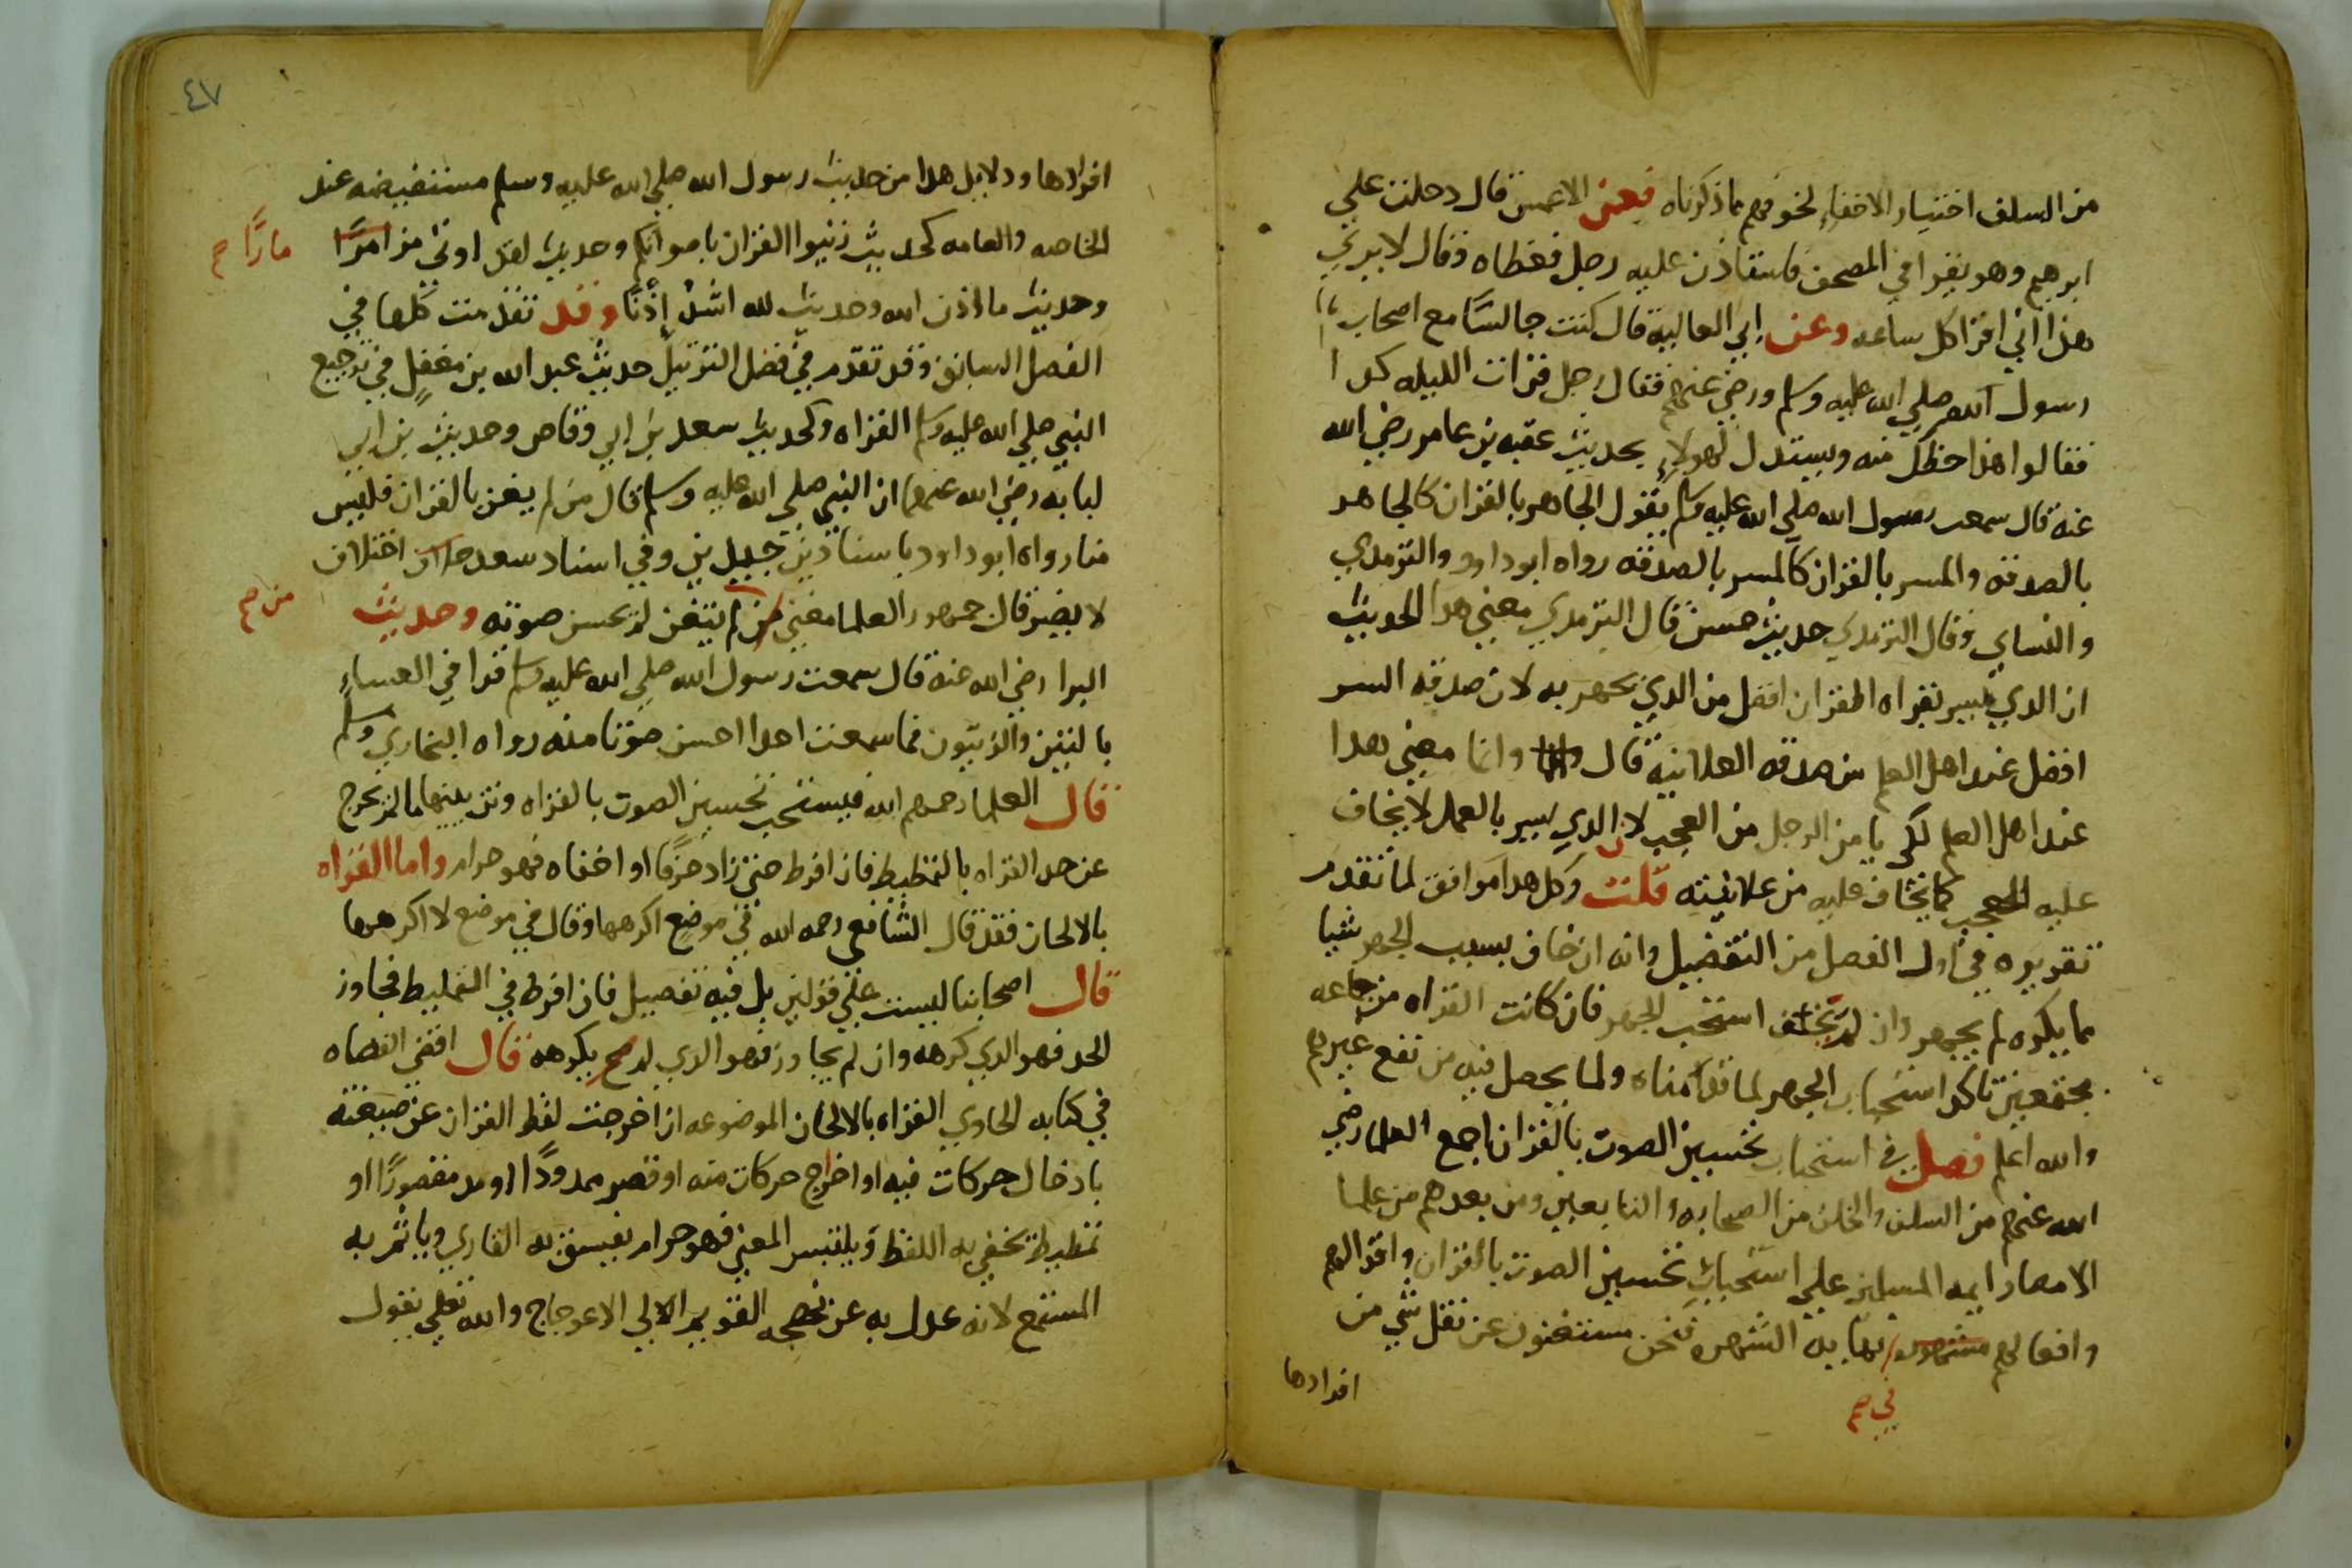 من السلف اختيار الاخفاء لخوفهم مما ذكرناه فعن الاعمش قال دخلت على
ابرهيم وهو يقرا في المصحف فاستاذن عليه رجل فغطاه وقال لا يرى
هذا اني اقرا كل ساعه وعن ابي العالية قال كنت جالسًا مع اصحاب
رسول الله صلى الله عليه وسلم ورضي عنهم فقال رجل قرات الليله كدا
فقالوا هذا حظك منه ويستدل لهولاء بحديث عقبه بن عامر رضي الله
عنه قال سمعت رسول الله صلى الله عليه وسلم يقول الجاهر بالقران كالجاهر
بالصدقه والمسر بالقران كالمسر بالصدقه رواه ابو داود والترمدي
والنساي وقال الترمدي حديث حسن قال الترمدي معنى هدا الحديث
ان الدي يسر بقراه القران افضل من الدي يجهر به لان صدقه السر
افضل عند اهل العلم من صدقه العلانيه قال وانما معنى هدا
عند اهل العلم لكي يامن الرجل من العجب لان الدي يسر بالعمل لا يخاف
عليه العجب كما يخاف عليه من علانيته قلت وكل هدا موافق لما تقدم
تقريره في اول الفصل من التفضيل وانه ان خاف بسبب الجهر شيا
مما يكره لم يجهر وان لم يخف استحب الجهر فان كانت القراه من جماعه
مجتمعين تاكد استحباب الجهر لما قدمناه ولما يحصل فيه من نفع غيرهم
والله اعلم فصل في استحباب تحسين الصوت بالقران اجمع العلما رضي
الله عنهم من السلف والخلف من الصحابه والتابعين ومن بعدهم من علما
الامصار ايمه المسلمين على استحباب تحسين الصوت بالقران واقوالهم
وافعالهم مشهوره نهاية الشهره فنحن مستغنون عن نقل شي من
في صح
افرادها
٤٧
افرادها ودلايل هدا من حديث رسول الله صلى الله عليه وسلم مستفيضه عند
الخاصه والعامه كحديث زينوا القران باصواتكم وحديث لقد اوتي مزامرًا
مارًا صح
وحديث ما اذن الله وحديث لله اشد إذنًا وقد تقدمت كلها في
الفصل السابق وقد تقدم في فضل الترتيل حديث عبد الله بن مغفل في ترجيع
النبي صلى الله عليه وسلم القراه وكحديث سعد بن ابي وقاص وحديث بن ابي
لبابه رضي الله عنهما ان النبي صلى الله عليه وسلم قال من لم يغن بالقران فليس
منا رواه ابو داود باسنادين جيدين وفي اسناد سعد اختلاف
لا يضر قال جمهور العلما معنى من لم يتغن لم يحسن صوته وحديث
من صح
البرا رضي الله عنه قال سمعت رسول الله صلى الله عليه وسلم قرا في العساء
بالتين والزيتون فما سمعت احدا احسن صوتا منه رواه البخاري ومسلم
قال العلما رحمهم الله فيستحب تحسين الصوت بالقراه وتزيينها ما لم تخرج
عن حد القراه بالتمطيط فان افرط حتى زاد حرفًا او اخفاه فهو حرام واما القراه
بالالحان فقد قال الشافعي رحمه الله في موضع اكرهها وقال في موضع لا اكرهها
قال اصحابنا ليست على قولين بل فيه تفصيل فان افرط في التمطيط فجاوز
الحد فهو الدي كرهه وان لم يجاوز فهو الدي لم يكرهه قال اقضى القضاه
في كتابه الحاوي القراه بالالحان الموضوعه ان اخرجت لفظ القران عن صيغته
بادخال حركات فيه او اخراج حركات منه او قصر ممدودًا او مد مقصورًا او
تمطيط يخفي به اللفظ ويلتبس المعنى فهو حرام يفسق به القاري وياثم به
المستمع لانه عدل به عن نهجه القويم الى الاعوجاج والله تعلى يقول